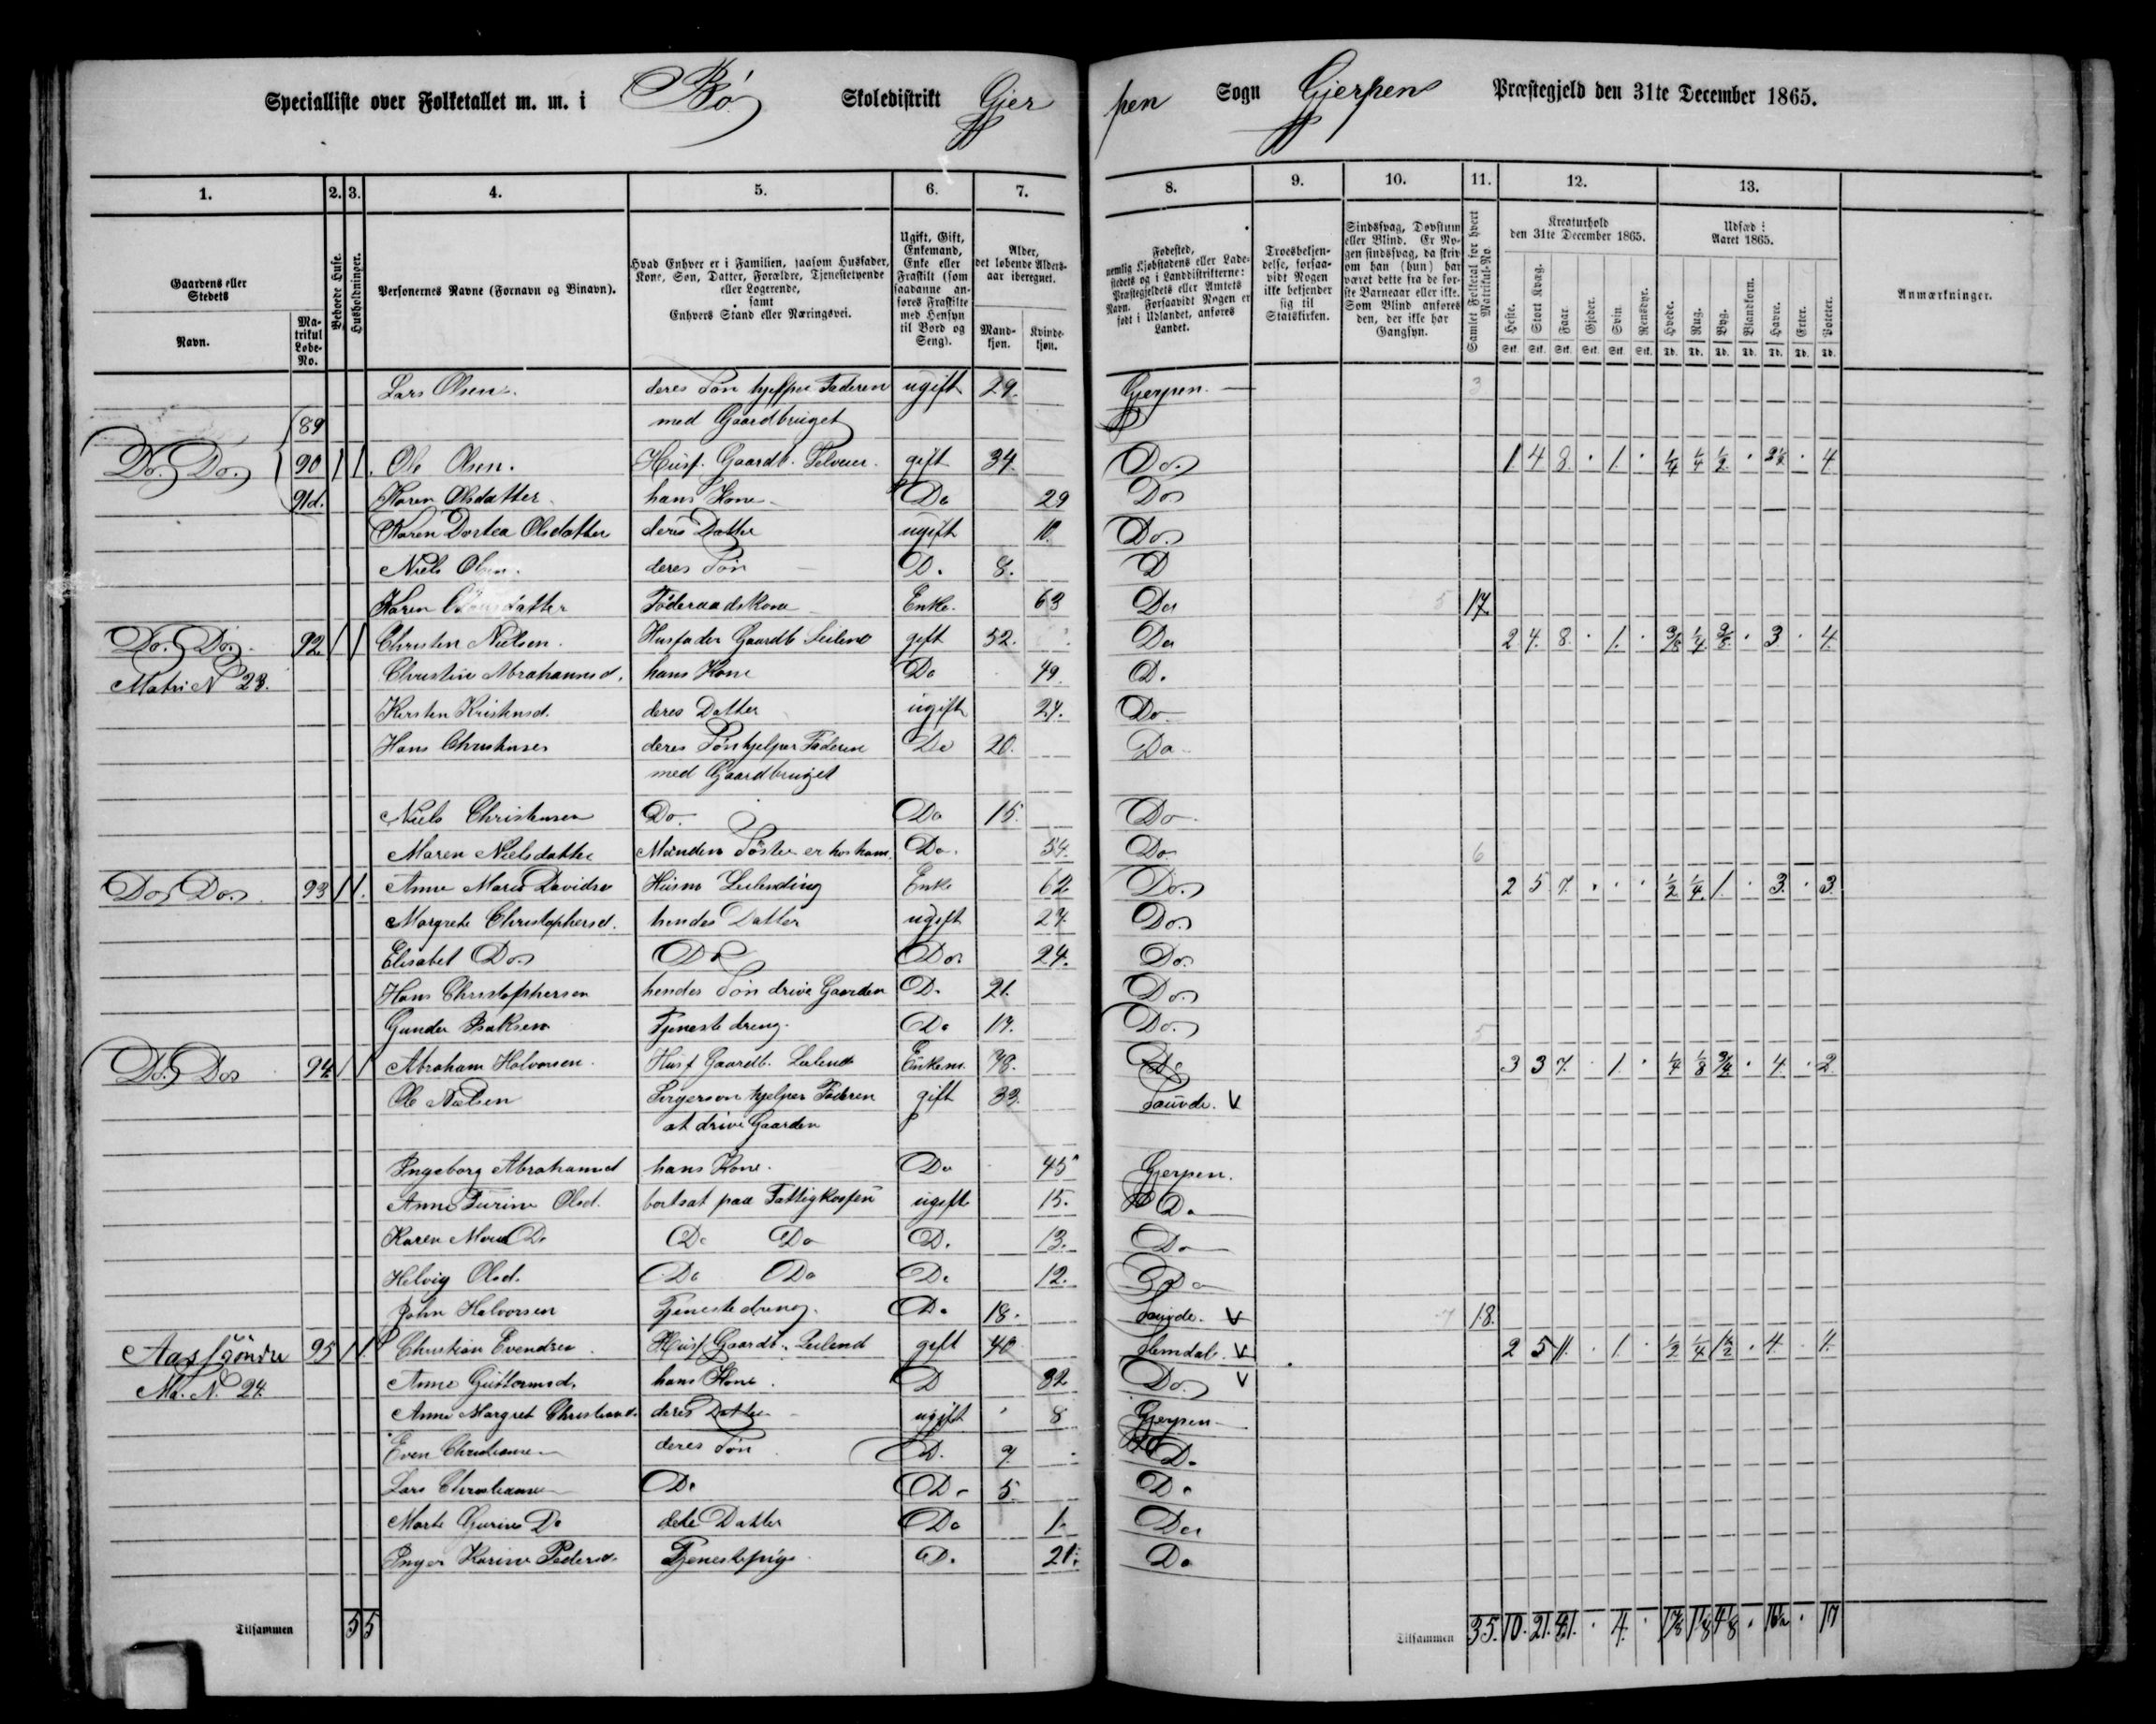 Specialliste over Folketallet m. m. i Bø Skoledistrikt Gjerpen Sogn Gjerpen Præstegjeld den 31te December 1865.
1. 2. 3. 4. 5. 6. 7. 8. 9. 10. 11. 12. 13.
Gaardens eller Stedets
Navn.
Matrikul Løbe-No.
Beboede Huse.
Husholdninger.
Personernes Navne (Fornavn og Binavn).
Hvad Enhver er i Familien, saasom Husfader, Kone, Søn, Datter, Forældre, Tjenestetyende eller Logerende, samt Enhvers Stand eller Næringsvei.
Ugift, Gift, Enkemand, Enke eller Fraskilt (som saadanne anføres Fraskilte med Hensyn til Bord og Seng).
Alder, det løbende Aldersaar iberegnet.
Mandkjøn. Kvindekjøn.
Fødested, nemlig Kjøbstadens eller Ladestedets og i Landdistrikterne: Præstegjeldets eller Amtets Navn. Forsaavidt Nogen er født i Udlandet, anføres Landet.
Troesbekjendelse, forsaavidt Nogen ikke bekjender sig til Statskirken.
Sindssvag, Døvstum eller Blind. Er Nogen sindssvag, da skrives om han (hun) har været dette fra de første Barneaar eller ikke. Som Blind anføres den, der ikke har Gangsyn.
Samlet Folketal for hvert Matrikul-No.
Kreaturhold den 31te December 1865.
Heste. Stort Kvæg. Faar. Gjeder. Svin. Rensdyr.
Udsæd i Aaret 1865.
Hvede. Rug. Byg. Blandkorn. Havre. Erter. Poteter.
Anmærkninger.
Lars Olsen. deres Søn hjelper Faderen ugift 29. Gjerpen. 3
89 med Gaardbruget
Do. Do. 90 1 1. Ole Olsen. Husf. Gaardb. Selveier. gift 34. Do. 1 4 8. · 1. · 1/4 1/4 1/2 · 2 1/2 · 4
91d. Karen Olsdatter hans Kone Do 29 Do
Karen Dortea Olsdatter deres Datter ugift 10. Do.
Niels Olsen. deres Søn D. 8. D
Karen datter Føderaadskone Enke. 63 Do 5 17
Do. Do. 92 1 1 Christen Nielsen. Husfader Gaardb Leilend gift 52. Do 2 4. 8. · 1. · 3/8 1/4 3/8 · 3 · 4.
Matri N 23. Christine Abrahamsd. hans Kone Do 49. D.
Kirsten Kristensd. deres Datter ugift 24. Do
Hans Christensen deres Søn hjelper Faderen Do 20. Do
med Gaardbruget
Niels Christensen Do. Do 15. Do
Maren Nielsdatter Mandens Søster er hos ham. Do. 54. Do. 6
Do Do. 93 1 1. Anne Marie Davidsd Husm Leilending Enke 62 Do. 2 5 7. · · · 1/2 1/4 1. · 3. · 3.
Margrete Christophersd. hendes Datter ugift 27 Do.
Elisabet Do. Do Do. 24. Do.
Hans Christophersen hendes Søn drive Gaarden D. 21. Do.
Gunder Isaksen Tjenestedreng. Do 17. Do. 5
Do. Do 94 1 1 Abraham Halvorsen. Husf Gaardb. Leilend Enkem. 78. Do. 3 3 7. · 1. · 1/4 1/8 3/4 · 4. · 2
Ole Nielsen hjelper Faderen gift 33. Souvde. V
at drive Gaarden
Ingeborg Abrahamsd hans Kone. Do 45 Gjerpen.
Anne Olsd. bortsat paa Fattigkassen ugift 15. Do
Karen Do Do Do D. 13. Do
Helvig Olsd. Do Do Do 12. Do
John Halvorsen Tjenestedreng. Do 18. Souvde. V 7 18.
Aas søndre 95 1 1. Christian Evendsen. Husf Gaardb. Leilend gift 40 Slemdal. V 2 5 11. · 1. · 1/2 1/4 1 1/2 · 4. · 4.
Ma. N. 24. Anne Guttormsd. hans Kone. D 32 Do. V
Anne Margret Christiansd. deres Datter ugift 8 Gjerpen
Even Christiansen deres Søn D. 7. D.
Lars Christiansen Do D. 5. D.
Marte Gurine Do dete Datter Do 1. Do
Inger Karine Pedersd. Tjenestepige D. 21. Do
Tilsammen 5 5 Tilsammen 35. 10. 21. 41. · 4. · 1 7/8 1 1/8 4 1/8 · 16 1/2 · 17